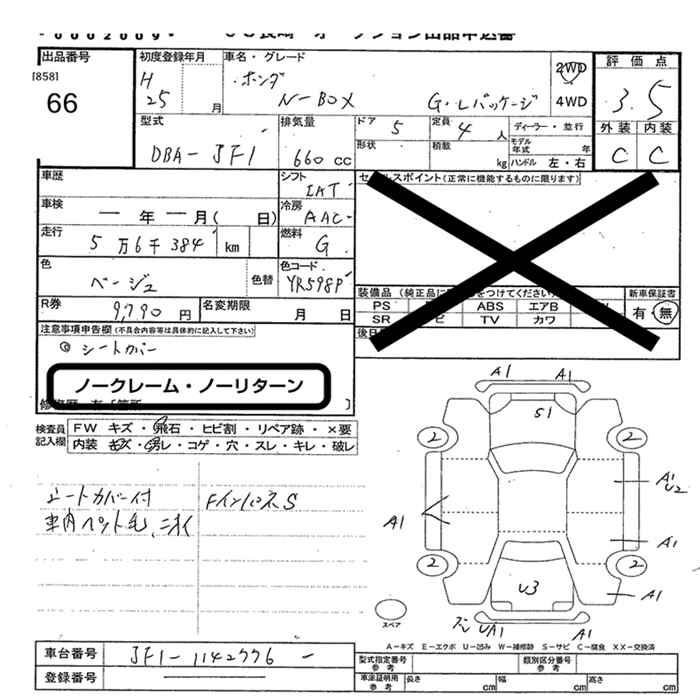 出品番号
[858]
66
初度登録年月
H
25 月
車名・グレード
ホンダ
N-BOX G・Lパッケージ
2WD
4WD
評価点
3.5
外装 内装
C C
型式
DBA-JF1
排気量
660 cc
ドア 5
定員 4 人
ディーラー・並行
形状
積載 kg
モデル年式 年
ハンドル 左・右
車歴
シフト
IAT
セールスポイント(正常に機能するものに限ります)
車検
― 年 ― 月( 日)
冷房
AAC
走行
5万6千384 km
燃料
G
色
ベージュ
色替
色コード
YR598P
装備品
PS
ABS エアB
SR
TV カワ
新車保証書
有・無
R券
9,790 円
名変期限
月 日
注意事項申告欄(不具合内容等は具体的に記入して下さい)
◎ シートカバー
ノークレーム・ノーリターン
検査員記入欄
FW キズ・飛石・ヒビ割・リペア跡・×要
内装 キズ・汚レ・コゲ・穴・スレ・キレ・破レ
シートカバー付 FインパネS
車内ペット毛、ニオイ
A1 A1
S1
2 2
A1
U2
A1
A1
2 2
U3
A1
UA1 A1
スペア
A－キズ E－エクボ U－凹み W－補修跡 S－サビ C－腐食 XX－交換済
車台番号
JF1-1142776
登録番号
型式指定番号
参考
類別区分番号
参考
車庫証明用
参考
長さ cm
幅 cm
高さ cm